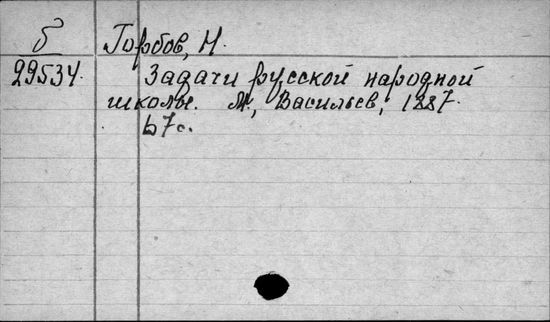 б Горбов, Н.
29534. Задачи русской народной
школы. М., Васильев, 1887.
67с.